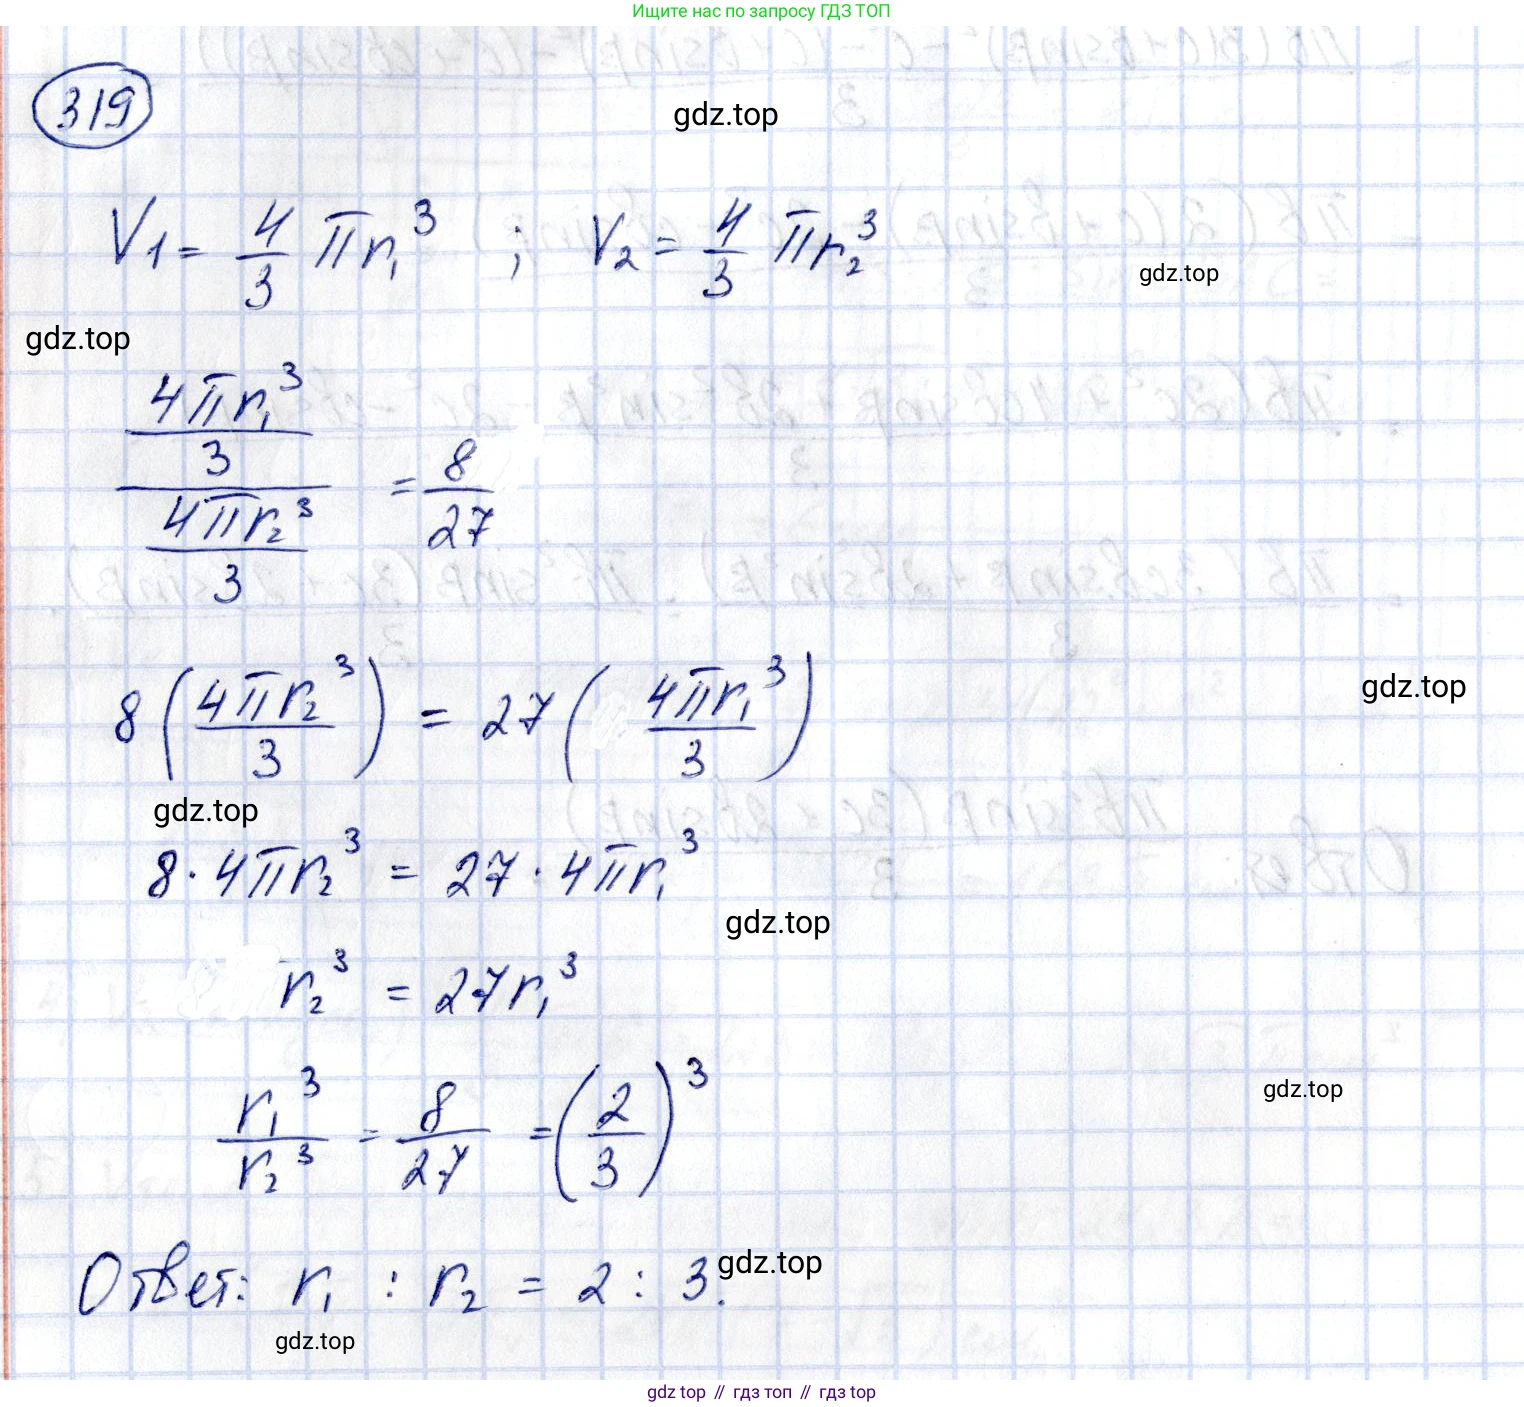 Ищите нас по запросу ГДЗ ТОП
319
gdz.top
V₁ = 4/3 πr₁³ ; V₂ = 4/3 πr₂³
gdz.top
gdz.top
(4πr₁³/3)/(4πr₂³/3) = 8/27
8(4πr₂³/3) = 27(4πr₁³/3)
gdz.top
gdz.top
8·4πr₂³ = 27·4πr₁³
gdz.top
r₂³ = 27r₁³
r₁³/r₂³ = 8/27 = (2/3)³
gdz.top
Ответ: r₁ : r₂ = 2 : 3.
gdz.top
gdz.top
gdz top // гдз топ // гдз top